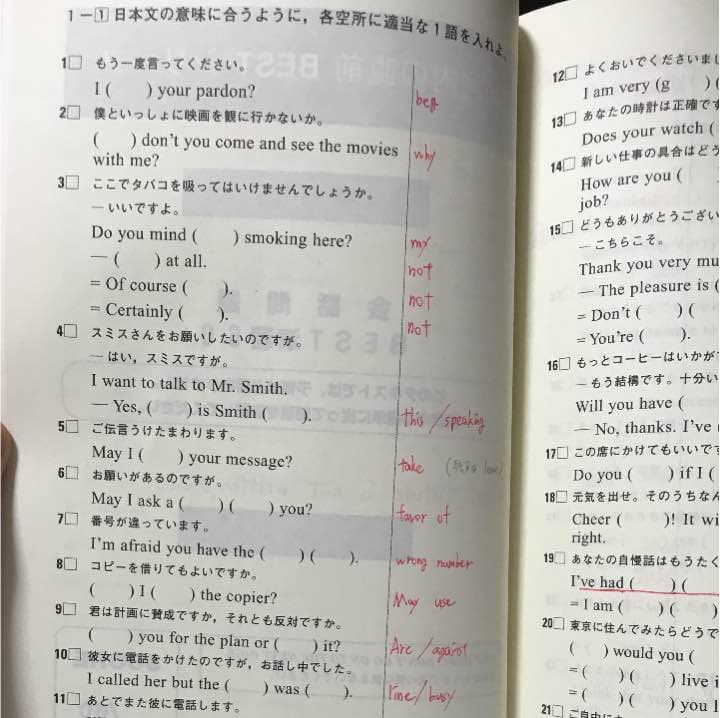 1-1 日本文の意味に合うように,各空所に適当な1語を入れよ。
1□ もう一度言ってください。
I (  ) your pardon? beg
2□ 僕といっしょに映画を観に行かないか。
(  ) don't you come and see the movies with me? why
3□ ここでタバコを吸ってはいけませんでしょうか。
—いいですよ。
Do you mind (  ) smoking here? my
— (  ) at all. not
= Of course (  ). not
= Certainly (  ). not
4□ スミスさんをお願いしたいのですが。
—はい,スミスですが。
I want to talk to Mr. Smith.
— Yes, (  ) is Smith (  ). this / speaking
5□ ご伝言うけたまわります。
May I (  ) your message? take
6□ お願いがあるのですが。
May I ask a (  ) (  ) you? favor of
7□ 番号が違っています。
I'm afraid you have the (  ) (  ). wrong number
8□ コピーを借りてもよいですか。
(  ) I (  ) the copier? May use
9□ 君は計画に賛成ですか,それとも反対ですか。
(  ) you for the plan or (  ) it? Are / against
10□ 彼女に電話をかけたのですが,お話し中でした。
I called her but the (  ) was (  ). line / busy
11□ あとでまた彼に電話します。
12□ よくおいでくださいまし
I am very (g  ) (
13□ あなたの時計は正確です
Does your watch (
14□ 新しい仕事の具合はどう
How are you (
job?
15□ どうもありがとうござい
—こちらこそ。
Thank you very mu
— The pleasure is (
= Don't (  ) (
= You're (  ).
16□ もっとコーヒーはいかが
—もう結構です。十分い
Will you have (
— No, thanks. I've (
17□ この席にかけてもいいです
Do you (  ) if I (
18□ 元気を出せ。そのうちなん
Cheer (  )! It wi
right.
19□ あなたの自慢話はもうたく
I've had (  ) (
= I am (  ) (  )
20□ 東京に住んでみたらどうで
(  ) would you (
= (  ) (  ) live i
= (  ) (  ) you l
21□ ご自由に